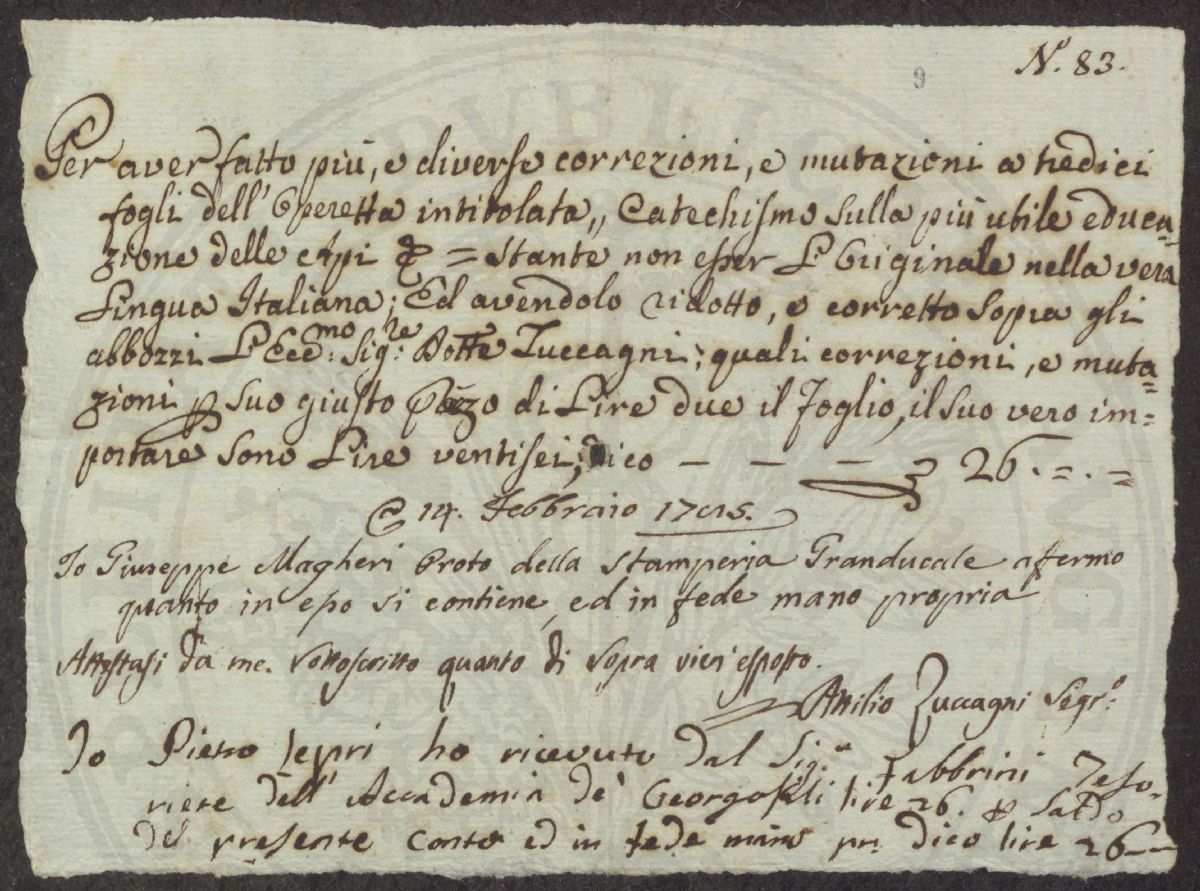 N.º 83.
9
Per aver fatto più, e diverse correzioni, e mutazioni a tredici
fogli dell'Operetta intitolata,, Catechismo sulla più utile educa=
zione delle Api & = stante non esser L'Originale nella vera
Lingua Italiana; Ed avendolo ridotto, e corretto sopra gli
abbozzi L'Ecc.mo Sig.re Dotte Zuccagni; quali correzioni, e muta=
zioni p suo giusto prezzo di Lire due il Foglio, il suo vero im=
portare sono Lire ventisei; Dico — — — 26. =. =
14. Febbraio
Io Giuseppe Magheri Proto della Stamperia Granducale affermo
quanto in esso si contiene, ed in fede mano propria
Attestasi da me sottoscritto quanto di sopra vien esposto.
Attilio Zuccagni Segr.º
Io Pietro ho ricevuto dal Sig.r Fabbrini Teso-
riere dell'Accademia de' Georgofili lire 26. & Saldo
del presente Conto ed in fede mano pr. dico lire 26—
PVBLIC